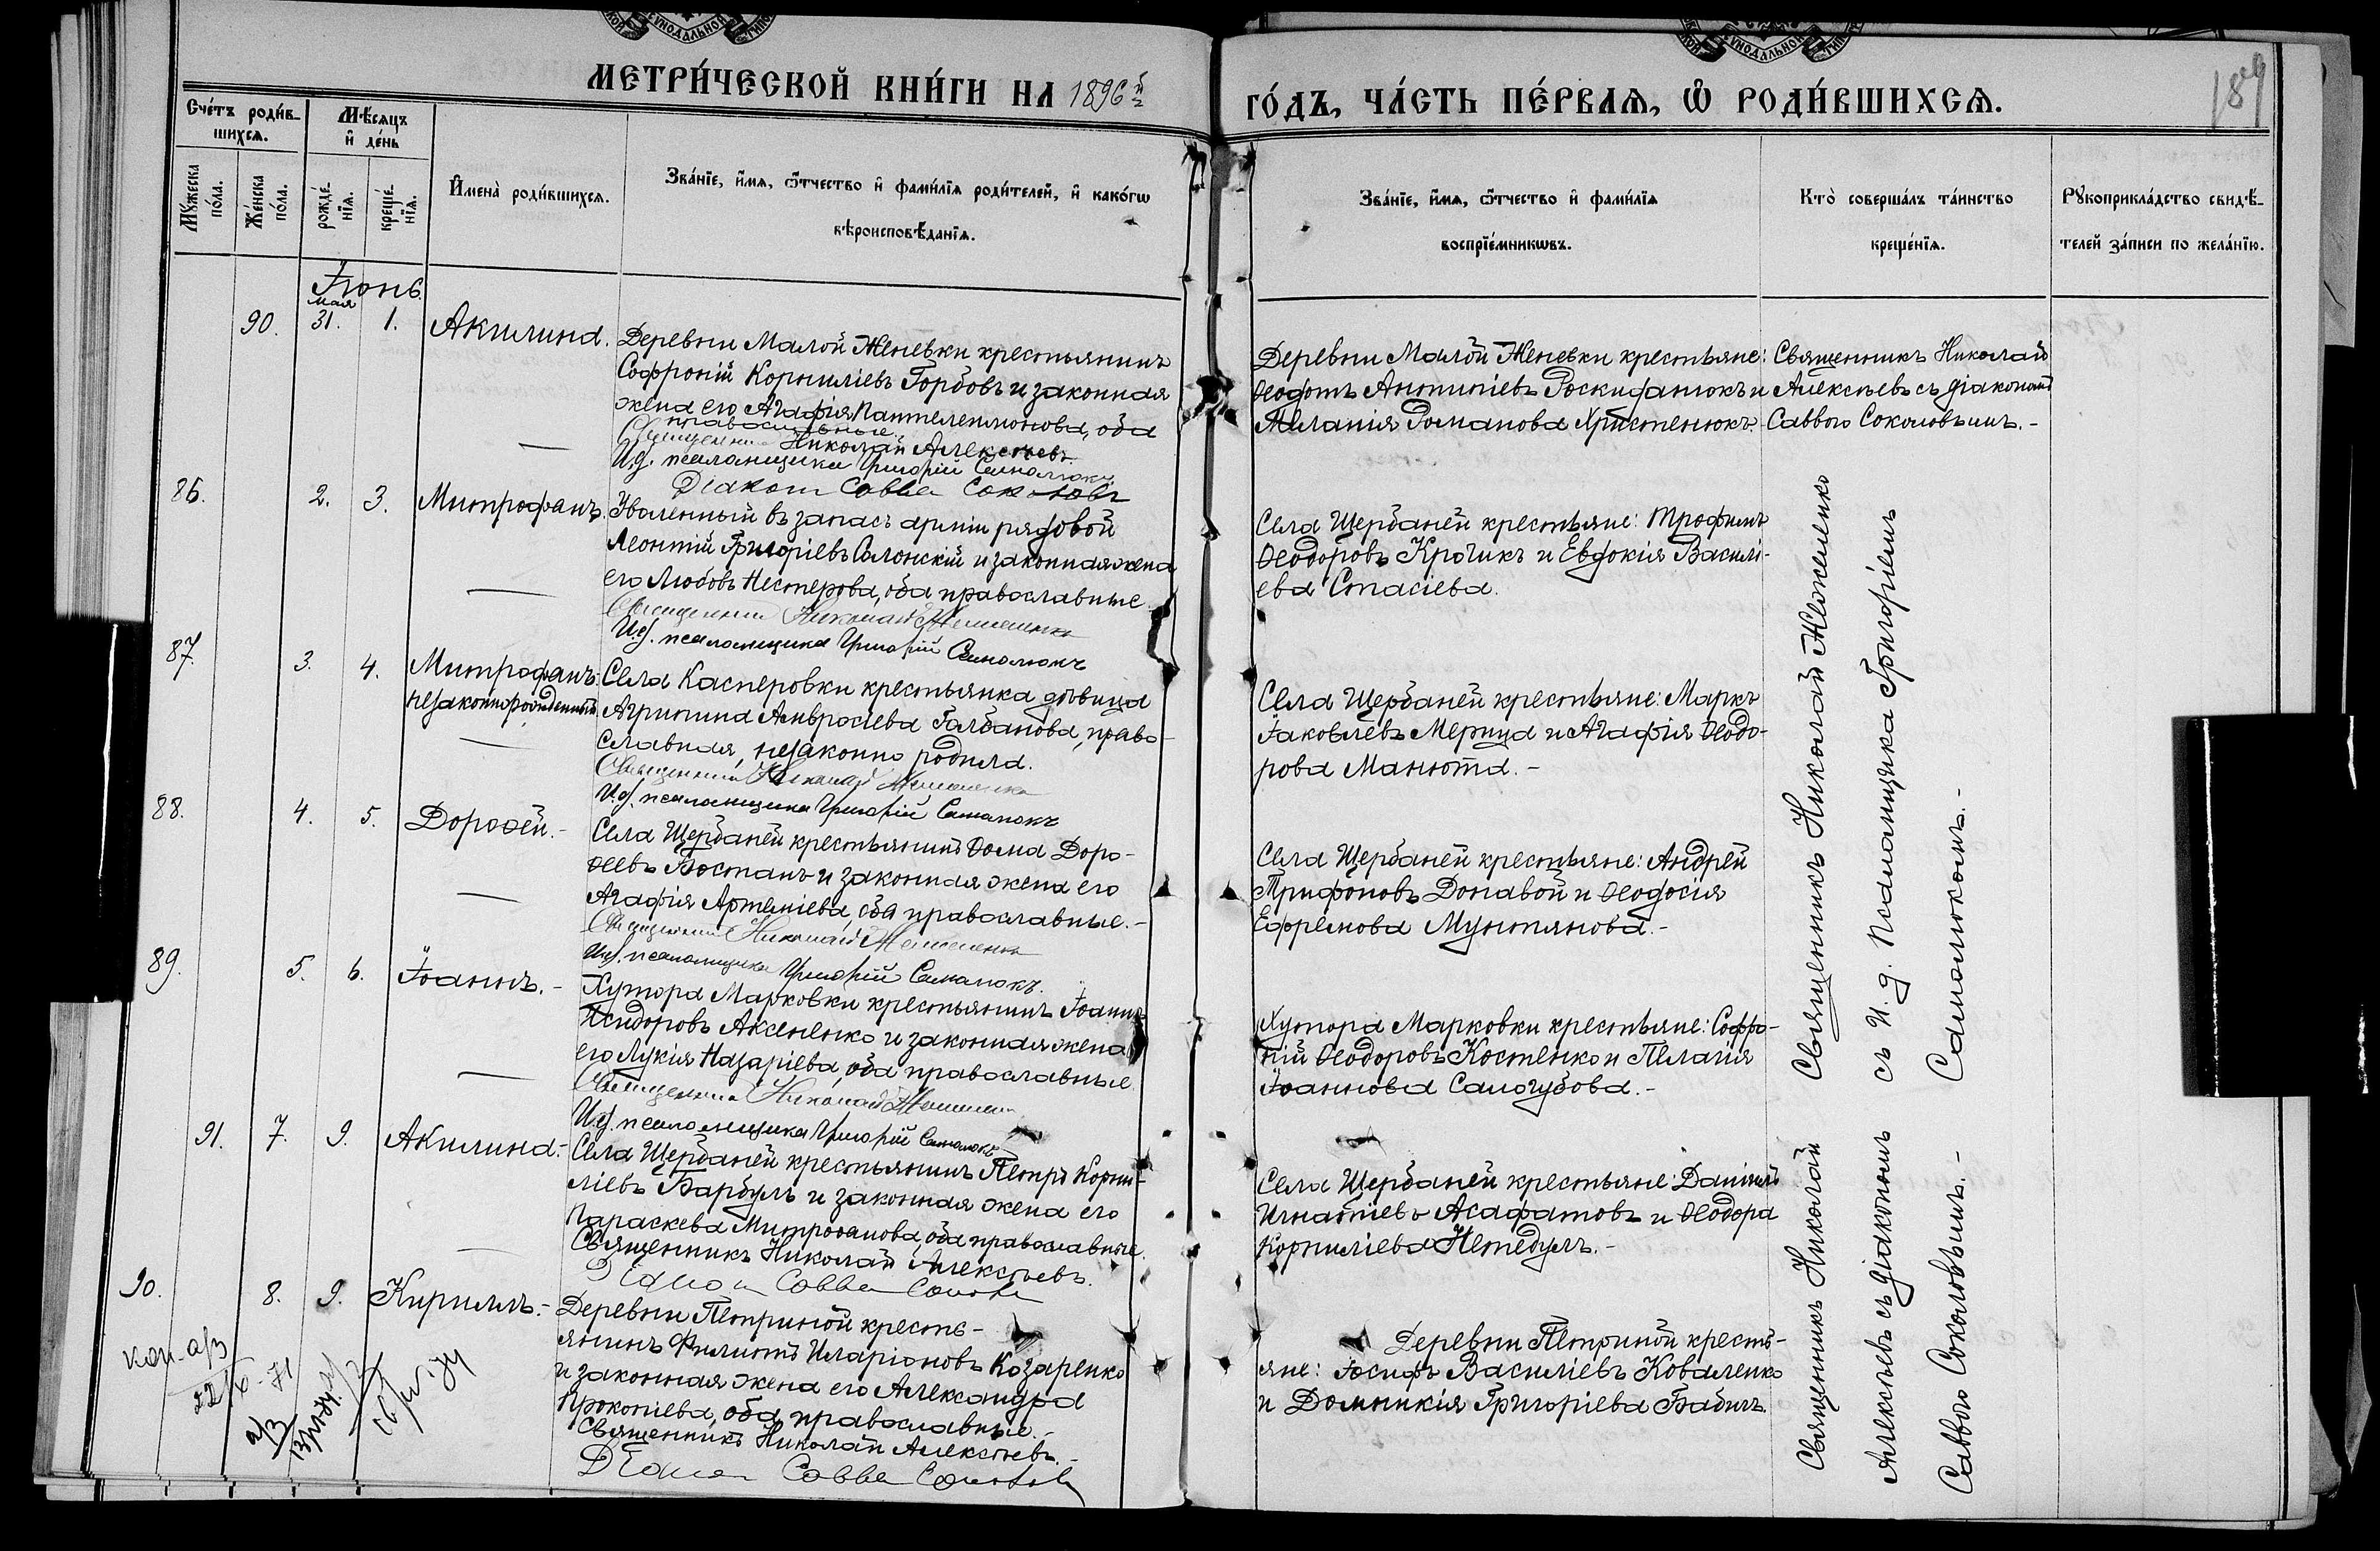 МЕТРИ́ЧЕСКОЙ КНИ́ГИ НА 1896й
ГО́ДЪ, ЧА́СТЬ ПЕ́РВАѦ, Ѽ РОДИ́ВШИХСѦ.
189
Сче́тъ роди́в-
шихсѧ.
Мѣ́сѧцъ
и҆ де́нь
Мꙋ́жеска
по́ла.
Же́нска
по́ла.
рожде́-
нїѧ.
креще́-
нїѧ.
И҆мена̀ роди́вшихсѧ.
Зва́нїе, и҆́мѧ, ѻ҆́тчество и҆ фами́лїѧ роди́телей, и҆ како́гѡ
вѣроисповѣ́данїѧ.
Зва́нїе, и҆́мѧ, ѻ҆́тчество и҆ фами́лїѧ
воспрїе́мникѡвъ.
Кто̀ соверша́лъ та́инство
креще́нїѧ.
Рꙋкоприкла́дство свидѣ́-
телей за́писи по жела́нїю.
Іюнь
мая
90. 31. 1. Акилина.
Деревни Малой Женевки крестьянинъ
Софроній Корниліевъ Горбовъ и законная
жена его Агафія Пантелеимонова, оба
православные.
Священникъ Николай Алексѣевъ
И.д. псаломщика Григорій Самолюкъ
Діаконъ Савва Соколовъ
Деревни Малой Женевки крестьяне:
Ѳеодотъ Антипіевъ Роскифанюкъ и
Меланія Романова Христенюкъ.
Священникъ Николай
Алексѣевъ съ діакономъ
Саввою Соколовымъ.-
86. 2. 3. Митрофанъ.
Уволенный въ запасъ арміи рядовой
Леонтій Григоріевъ Солонскій и законная жена
его Любовь Нестерова, оба православные.
Священникъ Николай Жележенко
И.д. псаломщика Григорій Самолюкъ
Села Щербаней крестьяне: Трофимъ
Ѳеодоровъ Крочикъ и Евдокія Василі-
ева Стасіева.
87. 3. 4. Митрофанъ.
незаконнорожденный
Села Касперовки крестьянка дѣвица
Агрипина Амвросіева Голбанова, право-
славная, незаконно родила.
Священникъ Николай Жележенко
И.д. псаломщика Григорій Самолюкъ
Села Щербаней крестьяне: Маркъ
Іаковлевъ Мерица и Агафія Ѳеодо-
рова Манюта.-
88. 4. 5. Дороѳей.-
Села Щербаней крестьянинъ Ѳома Доро-
ѳеевъ Бостанъ и законная жена его
Агафія Артеміева, оба православные.-
Священникъ Николай Жележенко
И.д. псаломщика Григорій Самолюкъ.
Села Щербаней крестьяне: Андрей
Трифоновъ Донавой и Ѳеодосія
Ефремова Мунтянова.-
89. 5. 6. Іоаннъ.-
Хутора Марковки крестьянинъ Іоаннъ
Исидоровъ Аксененко и законная жена
его Лукія Назаріева, оба православные.
Священникъ Николай Жележенко
И.д. псаломщика Григорій Самолюкъ
Хутора Марковки крестьяне: Софро-
ній Ѳеодоровъ Костенко и Пелагія
Іоаннова Самогубова.-
Священникъ Николай Жележенко
съ И. д. Псаломщика Григоріемъ
Самолюкомъ.-
91. 7. 9. Акилина.-
Села Щербаней крестьянинъ Петръ Корни-
ліевъ Барбулъ и законная жена его
Параскева Митрофанова, оба православные.
Священникъ Николай Алексѣевъ.
Діаконъ Савва Соколовъ
Села Щербаней крестьяне: Даніилъ
Игнатіевъ Асафатовъ и Ѳеодора
Корниліева Нетедулъ.-
90. 8. 9. Кириллъ.-
Деревни Петриной кресть-
янинъ Филиппъ Иларіоновъ Козаренко
и законная жена его Александра
Прокопіева, оба православные.-
Священникъ Николай Алексѣевъ.-
Діаконъ Савва Соколовъ
Деревни Петриной кресть-
яне: Іосифъ Василіевъ Коваленко
и Домникія Григоріева Бабичъ.
Священникъ Николай
Алексѣевъ съ діакономъ
Саввою Соколовымъ.-